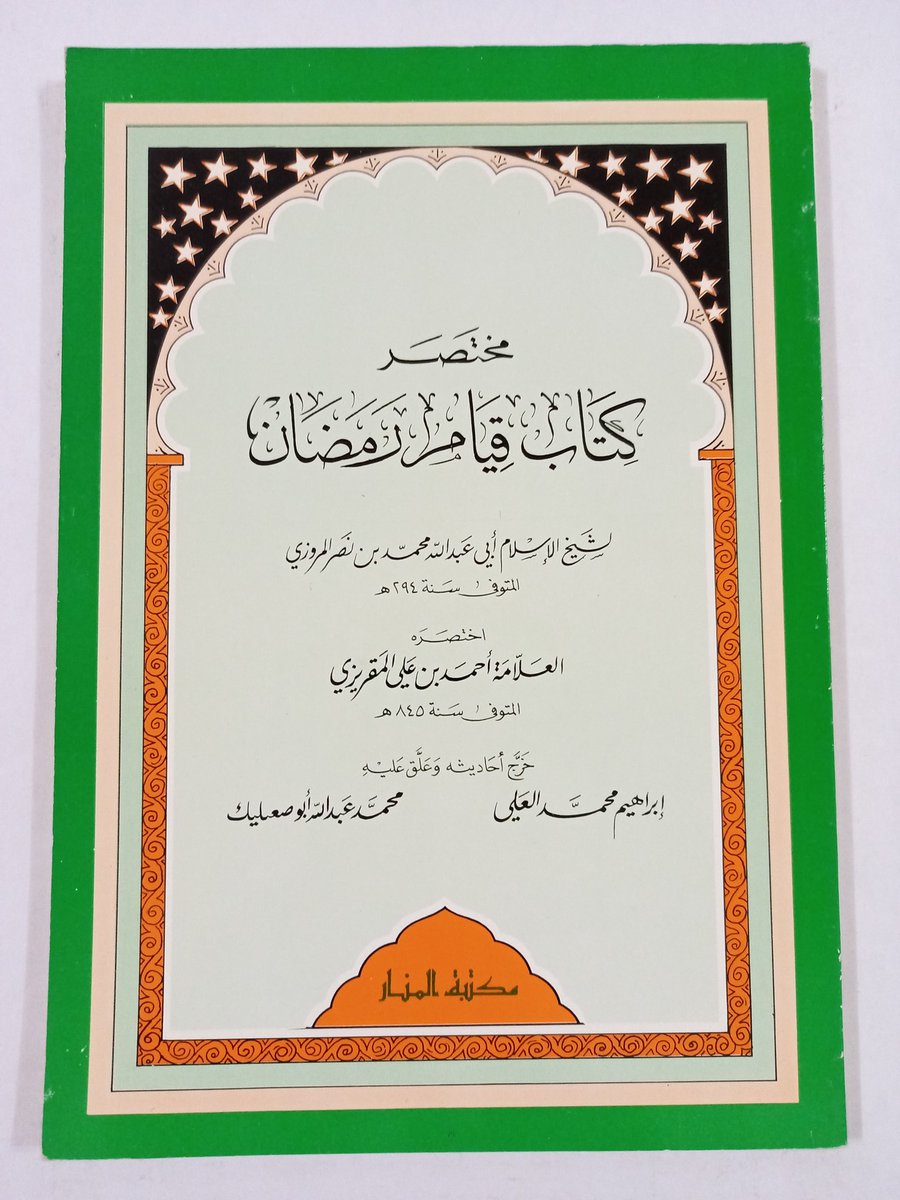 مختصَر
كِتَاب قِيَام رَمَضَان
لشَيخ الإسلام أبي عَبدالله محمّد بن نَصر المروزي
المتوفى سَنة ٢٩٤ هـ
اختصَرَه
العَلاّمَة أحمَد بن عَلي المَقريزي
المتوفى سَنة ٨٤٥ هـ
خَرَّج أحَاديثه وَعَلَّق عَليْهِ
إبراهيم محمَّد العَلي محمَّد عَبدالله أبو صعيليك
مكتبة المنار